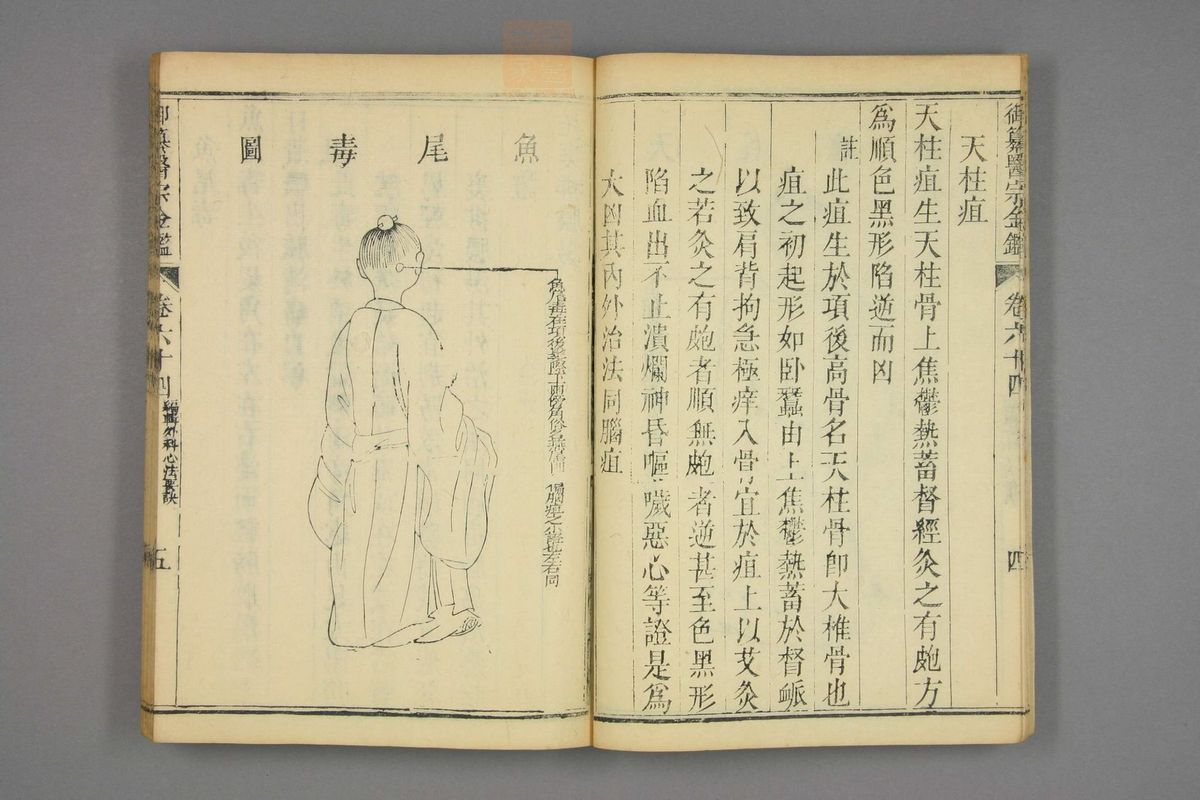 御纂醫宗金鑑
卷六十四
四
天柱疽
天柱疽生天柱骨上焦鬱熱蓄督經灸之有皰方
爲順色黑形陷逆而凶
註
此疽生於項後高骨名天柱骨卽大椎骨也
疽之初起形如卧蠶由上焦鬱熱蓄於督䘑
以致肩背拘急極痒入骨宜於疽上以艾灸
之若灸之有皰者順無皰者逆甚至色黑形
陷血出不止潰爛神昏嘔噦惡心等證是爲
大凶其內外治法同腦疽
魚尾毒圖
魚尾毒在項後髮際下兩傍角俗名燕窩
偏腦疽之小證也左右同
御纂醫宗金鑑
卷六十四
編輯外科心法要訣
五